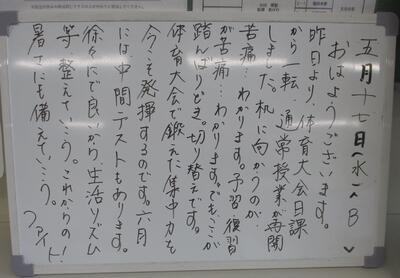 五月十七日(水)B
おはようございます。
昨日より、体育大会日課
から一転、通常授業が再開
しました。机に向かうのが
苦痛…わかります。予習・復習
が苦痛…わかります。でも、ここが
踏んばりどき。切り替えです。
体育大会で鍛えた集中力を
今こそ発揮するのです。六月
には中間テストもあります。
徐々にで良いから、生活リズム
等、整えていこう。これからの
暑さにも備えていこう。ファイト!